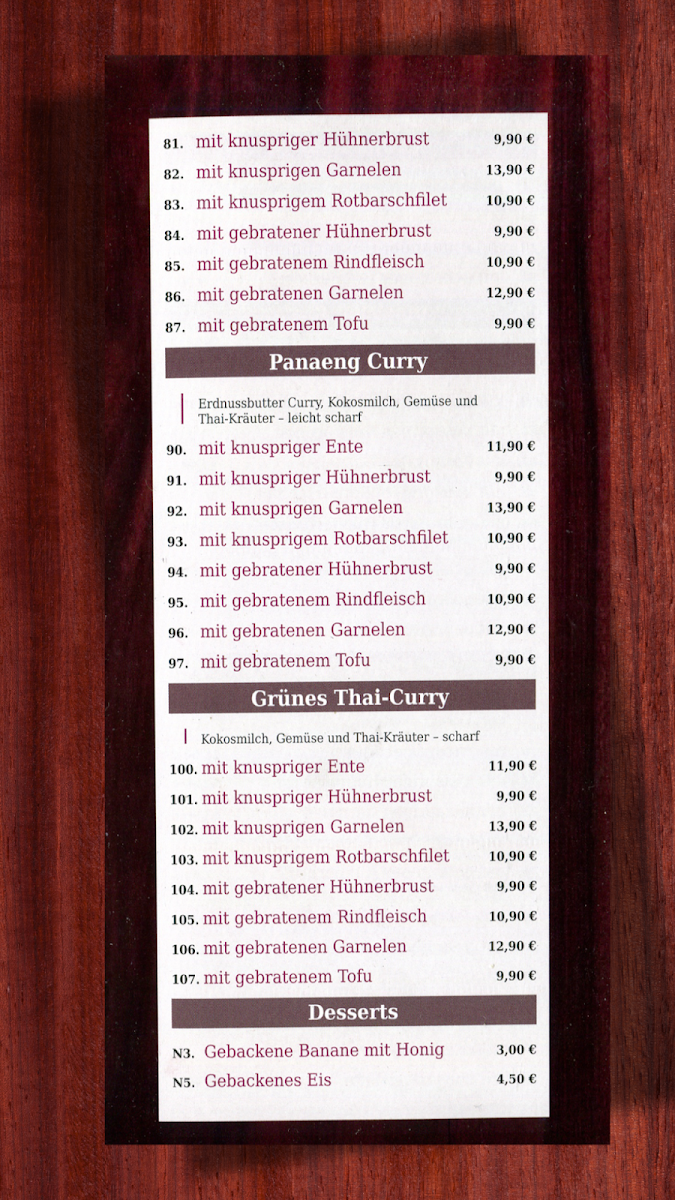 81. mit knuspriger Hühnerbrust 9,90 €
82. mit knusprigen Garnelen 13,90 €
83. mit knusprigem Rotbarschfilet 10,90 €
84. mit gebratener Hühnerbrust 9,90 €
85. mit gebratenem Rindfleisch 10,90 €
86. mit gebratenen Garnelen 12,90 €
87. mit gebratenem Tofu 9,90 €
Panaeng Curry
Erdnussbutter Curry, Kokosmilch, Gemüse und
Thai-Kräuter – leicht scharf
90. mit knuspriger Ente 11,90 €
91. mit knuspriger Hühnerbrust 9,90 €
92. mit knusprigen Garnelen 13,90 €
93. mit knusprigem Rotbarschfilet 10,90 €
94. mit gebratener Hühnerbrust 9,90 €
95. mit gebratenem Rindfleisch 10,90 €
96. mit gebratenen Garnelen 12,90 €
97. mit gebratenem Tofu 9,90 €
Grünes Thai-Curry
Kokosmilch, Gemüse und Thai-Kräuter – scharf
100. mit knuspriger Ente 11,90 €
101. mit knuspriger Hühnerbrust 9,90 €
102. mit knusprigen Garnelen 13,90 €
103. mit knusprigem Rotbarschfilet 10,90 €
104. mit gebratener Hühnerbrust 9,90 €
105. mit gebratenem Rindfleisch 10,90 €
106. mit gebratenen Garnelen 12,90 €
107. mit gebratenem Tofu 9,90 €
Desserts
N3. Gebackene Banane mit Honig 3,00 €
N5. Gebackenes Eis 4,50 €